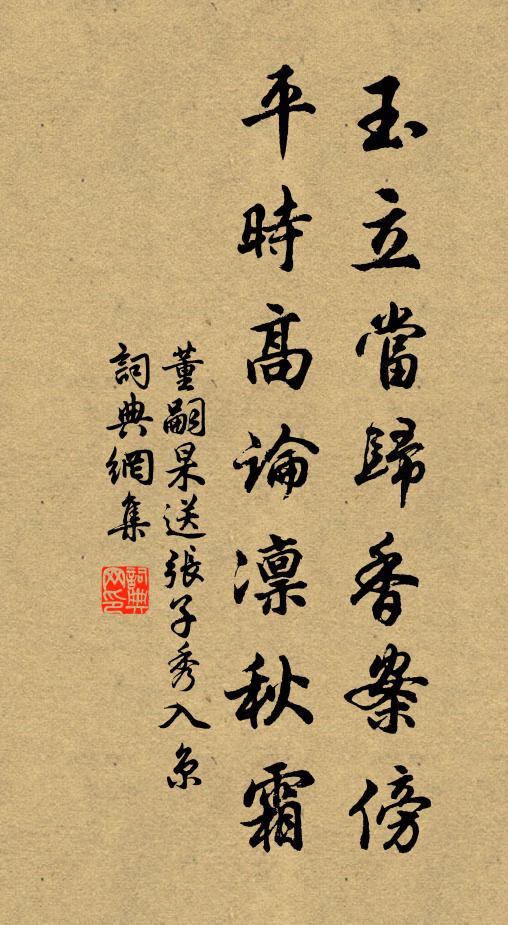 玉立當歸香案傍
平時高論凜秋霜
董嗣杲送張子秀入京
詞典網集
詞典网印